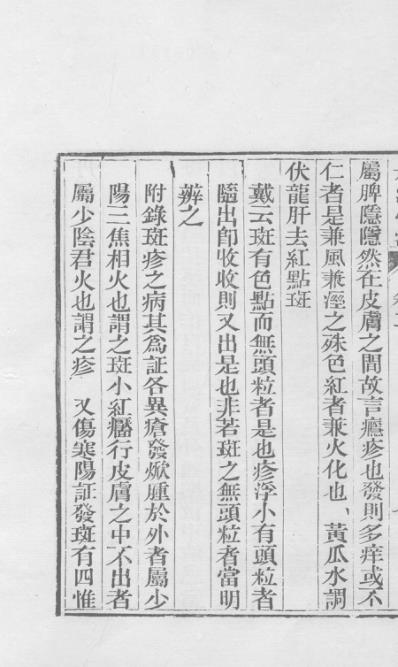 屬脾隱隱然在皮膚之間故言癮疹也發則多痒或不
仁者是兼風兼溼之殊色紅者兼火化也、黃瓜水調
伏龍肝去紅點斑
戴云斑有色點而無頭粒者是也疹浮小有頭粒者
隨出卽收收則又出是也非若斑之無頭粒者當明
辨之
附錄斑疹之病其爲証各異瘡發焮腫於外者屬少
陽三焦相火也謂之斑小紅靨行皮膚之中不出者
屬少陰君火也謂之疹 又傷寒陽証發斑有四惟